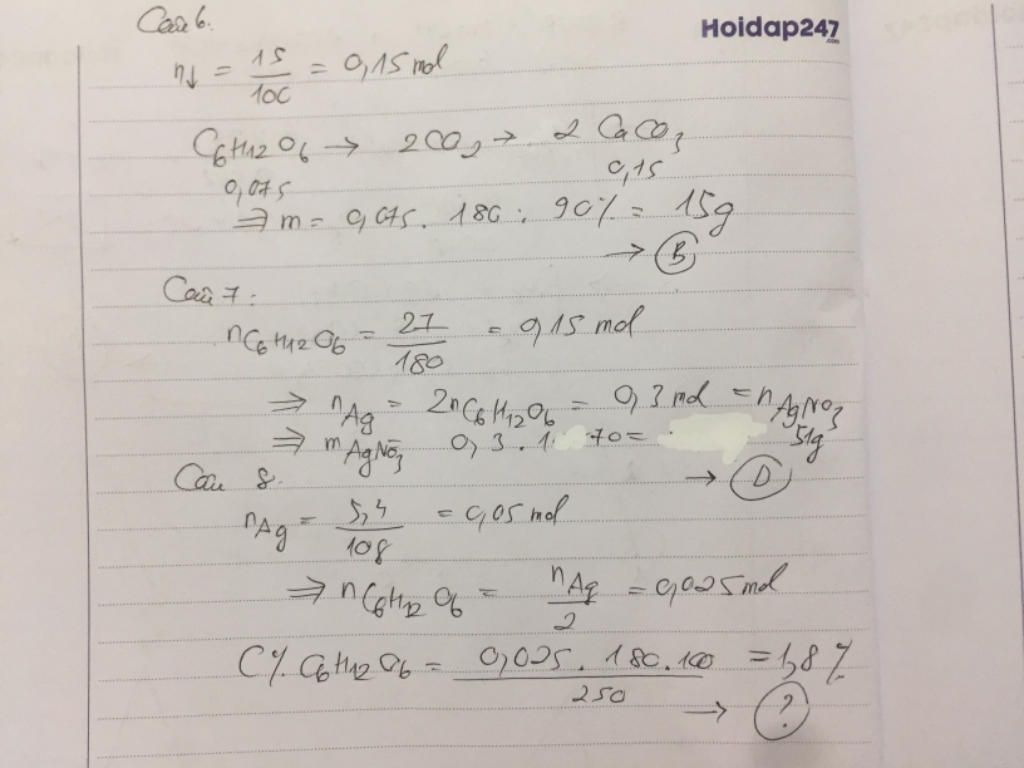 Câu 6.
Hoidap247.com
n↓ = 15/100 = 0,15 mol
C6H12O6 → 2CO2 → 2 CaCO3
0,075 0,15
⇒ m = 0,075. 180 : 90% = 15g
→ B
Câu 7:
nC6H12O6 = 27/180 = 0,15 mol
⇒ nAg = 2nC6H12O6 = 0,3 mol = nAgNO3
⇒ mAgNO3 = 0,3. 170 = 51g
→ D
Câu 8.
nAg = 5,4/108 = 0,05 mol
⇒ nC6H12O6 = nAg/2 = 0,025 mol
C% C6H12O6 = 0,025. 180. 100/250 = 1,8%
→ ?